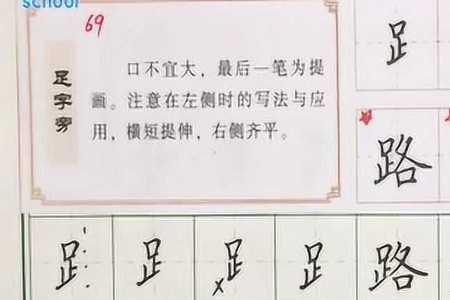 school
69
足字旁
口不宜大，最后一笔为提
画。注意在左侧时的写法与应
用，横短提伸，右侧齐平。
𧾷
路
𧾷 𧾷 𧾷 𧾷 路